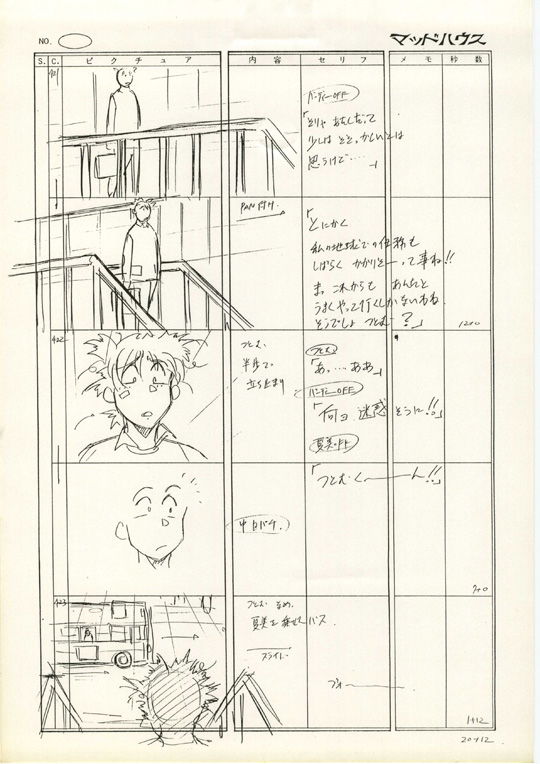 NO.
マッドハウス
S. C. ピクチュア 内容 セリフ メモ 秒数
421
バーディーOFF
「そりゃ あたしだって
少しは
思うけど……」
PAN付け
「とにかく
私の地球での任務も
しばらく かかりそーって事ね!!
ま、これからも あんたと
うまくやって行くしかないわね
そうでしょ つとむ ?」
12+0
422
つとむ
半身で
立ち止まり
つとむ
「あ、…ああ」
バーディーOFF
「何よ 迷惑 そうに!!」
夏美OFF
「つとむくーーん!!」
中カバチ
7+0
423
つとむ なめ、
夏美を乗せたバス
スライド
ブォーー
1+12
20+12